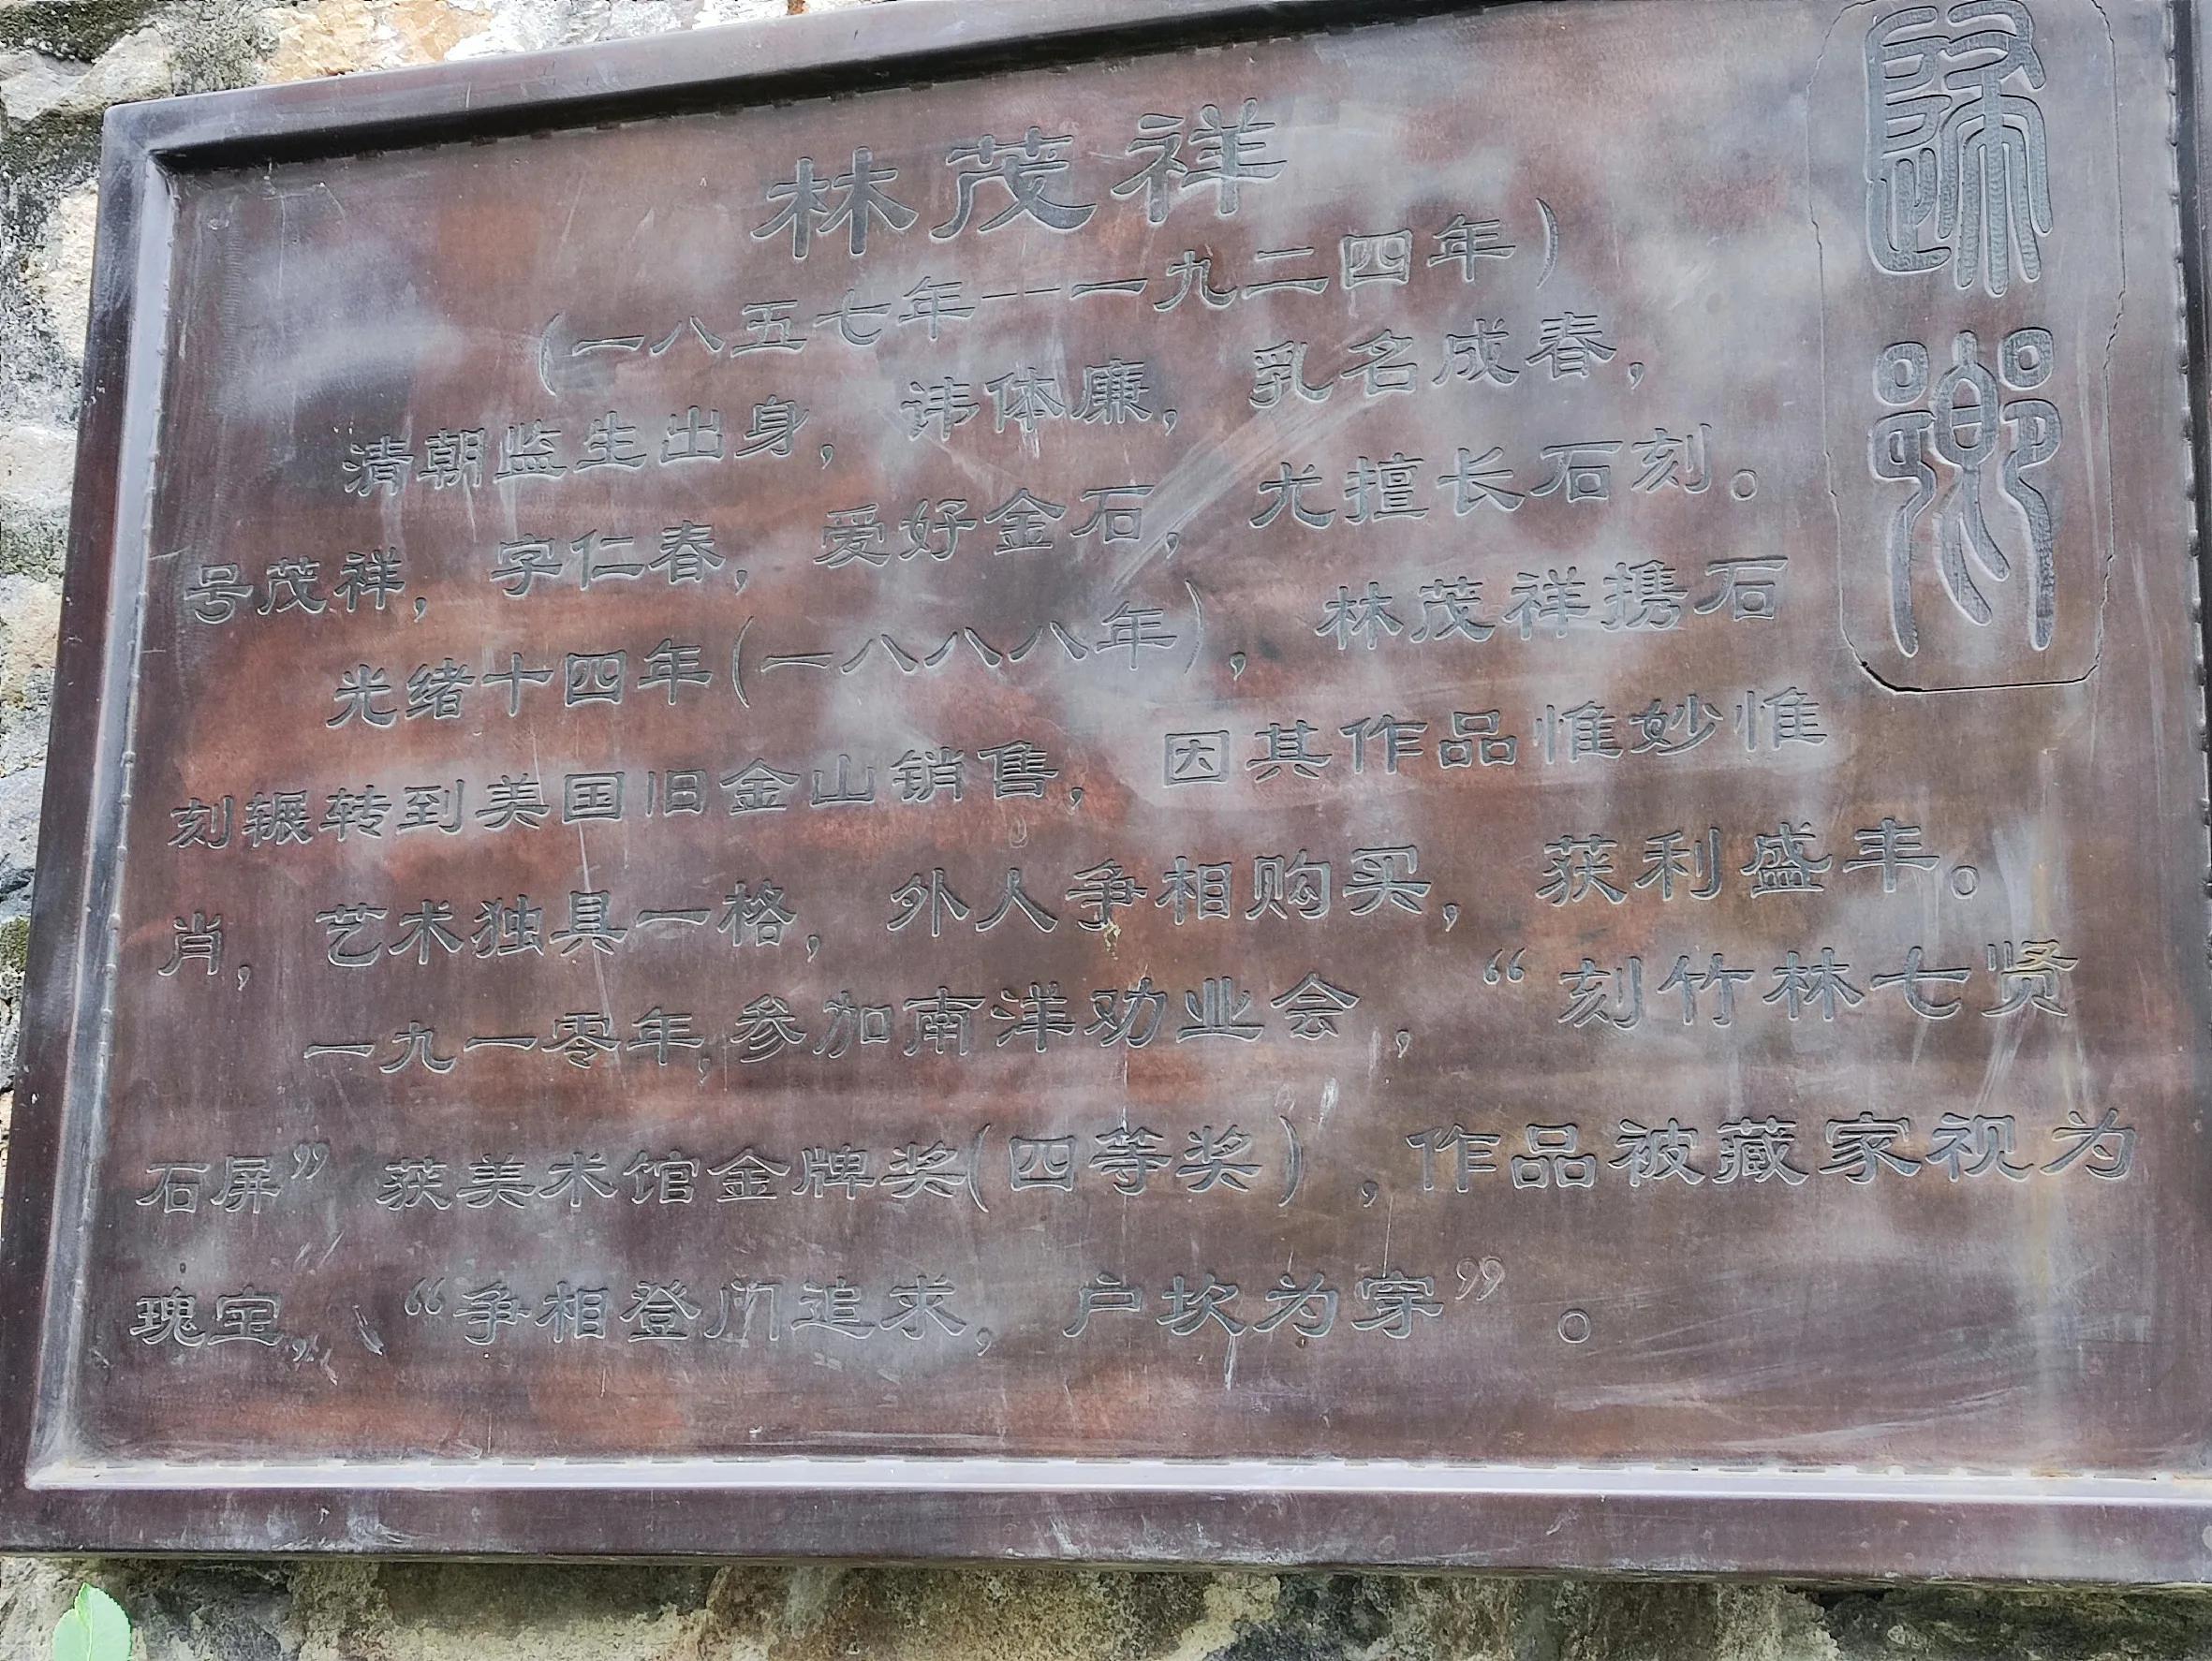 林茂祥
(一八五七年——一九二四年)
清朝监生出身，讳体廉，乳名成春，
号茂祥，字仁春，爱好金石，尤擅长石刻。
光绪十四年(一八八八年)，林茂祥携石
刻辗转到美国旧金山销售，因其作品惟妙惟
肖，艺术独具一格，外人争相购买，获利盛丰。
一九一零年,参加南洋劝业会，“刻竹林七贤
石屏”获美术馆金牌奖(四等奖)，作品被藏家视为
瑰宝，“争相登门追求，户坎为穿”。